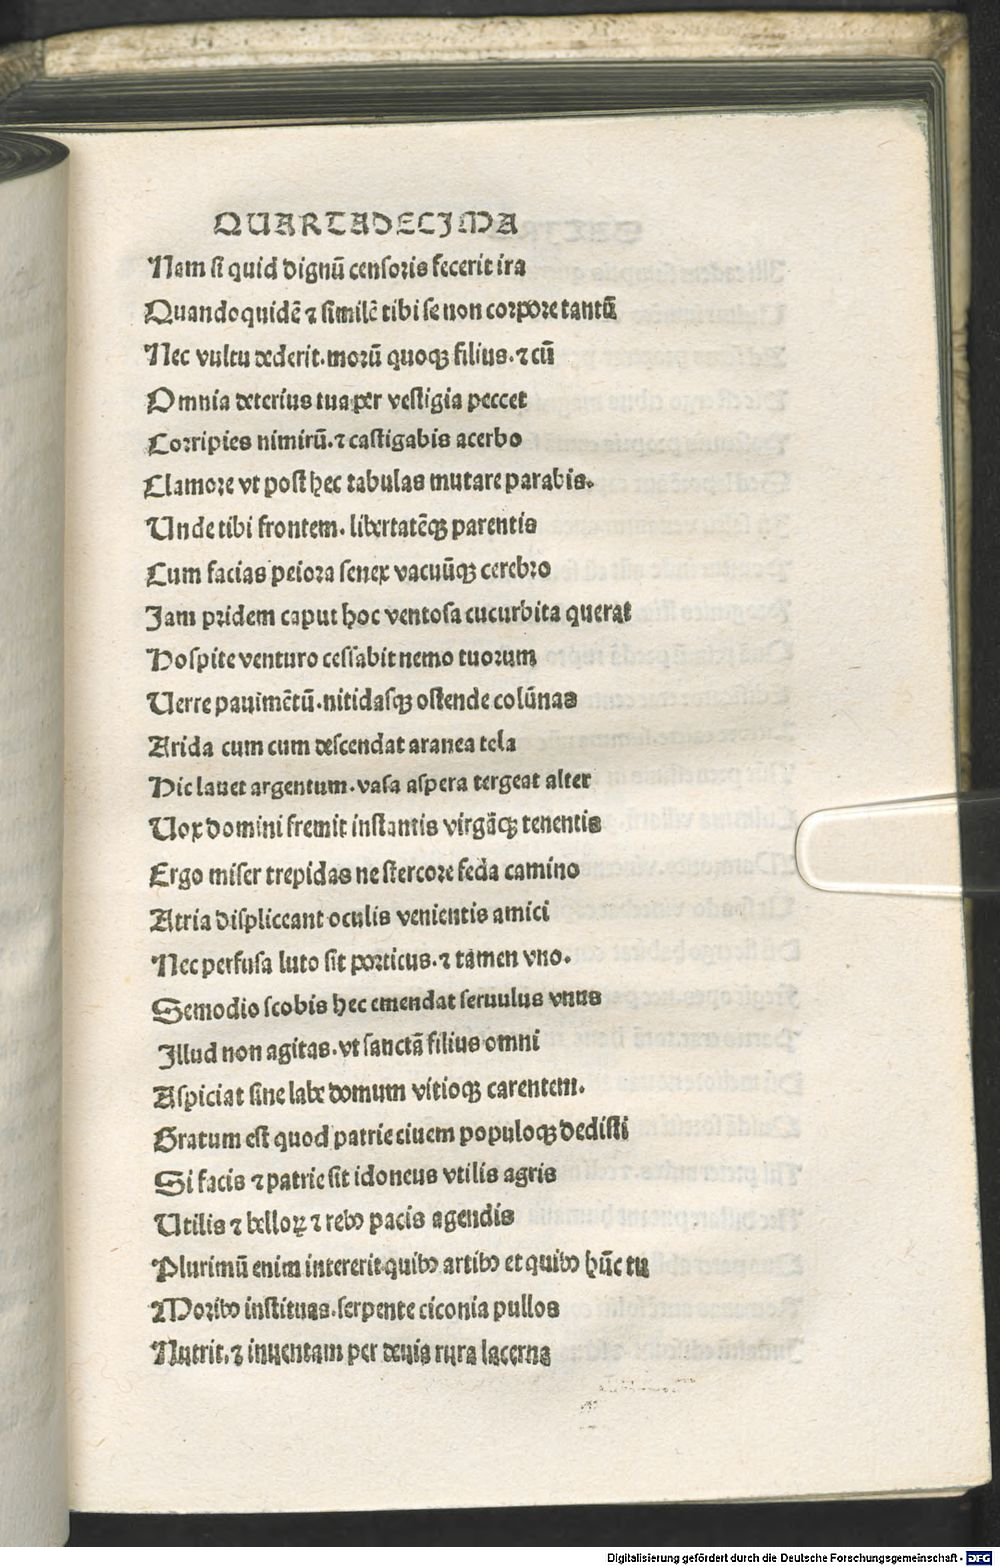 QUARTADECIMA
Nam si quid dignū censoris fecerit ira
Quandoquidē ⁊ similē tibi se non corpore tantū
Nec vultu dederit. morū quoqꝫ filius. ⁊ cū
Omnia deterius tua per vestigia peccet
Corripies nimirū. ⁊ castigabis acerbo
Clamore vt post hec tabulas mutare parabis.
Unde tibi frontem. libertatēqꝫ parentis
Cum facias peiora senex vacuūqꝫ cerebro
Iam pridem caput hoc ventosa cucurbita querat
Hospite venturo cessabit nemo tuorum
Uerre pauimētū. nitidasqꝫ ostende colūnas
Arida cum cum descendat aranea tela
Hic lauet argentum. vasa aspera tergeat alter
Uox domini fremit instantis virgāqꝫ tenentis
Ergo miser trepidas ne stercore feda camino
Atria displiceant oculis venientis amici
Nec perfusa luto sit porticus. ⁊ tamen vno.
Semodio scobis hec emendat seruulus vnus
Illud non agitas. vt sanctā filius omni
Aspiciat sine labe domum vitioqꝫ carentem.
Gratum est quod patrie ciuem populoqꝫ dedisti
Si facis ⁊ patrie sit idoneus vtilis agris
Utilis ⁊ belloꝝ ⁊ rebꝰ pacis agendis
Plurimū enim intererit quibꝰ artibꝰ et quibꝰ hūc tu
Moribꝰ instituas. serpente ciconia pullos
Nutrit. ⁊ inuentam per deuia rura lacerna
Digitalisierung gefördert durch die Deutsche Forschungsgemeinschaft - DFG